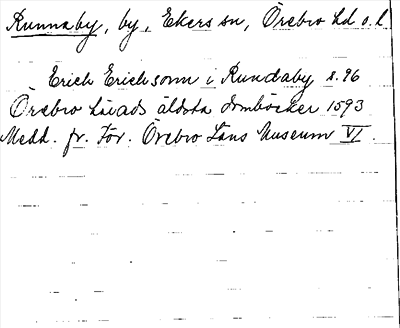 Runnaby, by, Ekers sn, Örebro hd o. l
Erich Ericksonn i Rundaby s. 96
Örebro härads äldsta domböcker 1593
Medd. fr. För. Örebro Läns Museum VI.